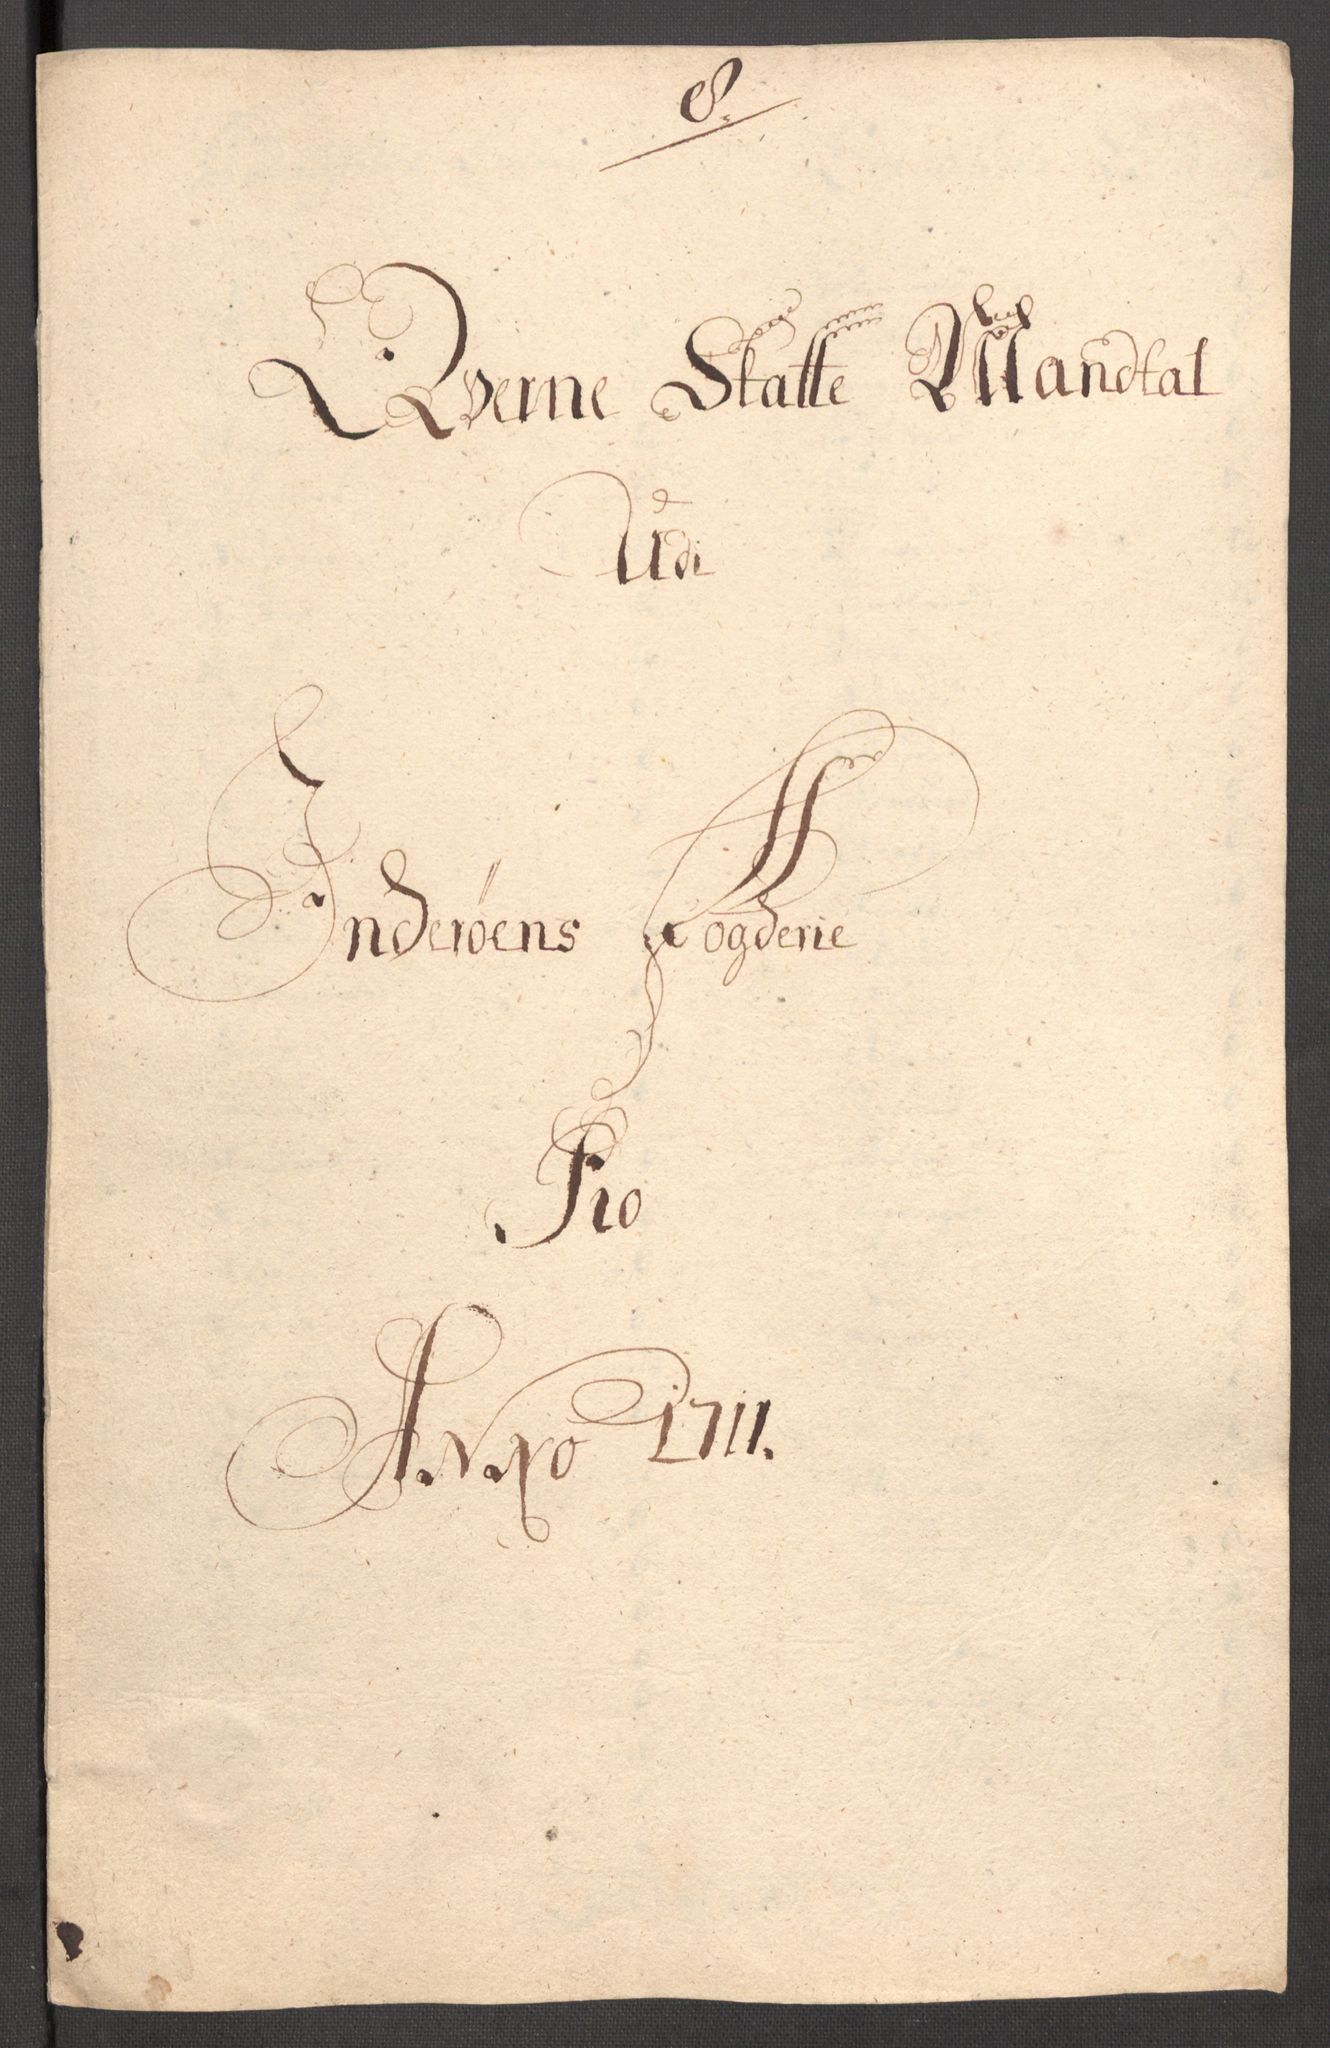 8.
Qverne Skatte Mandtal
Udi
Inderøens Fogderie
Pro
Anno 1711.